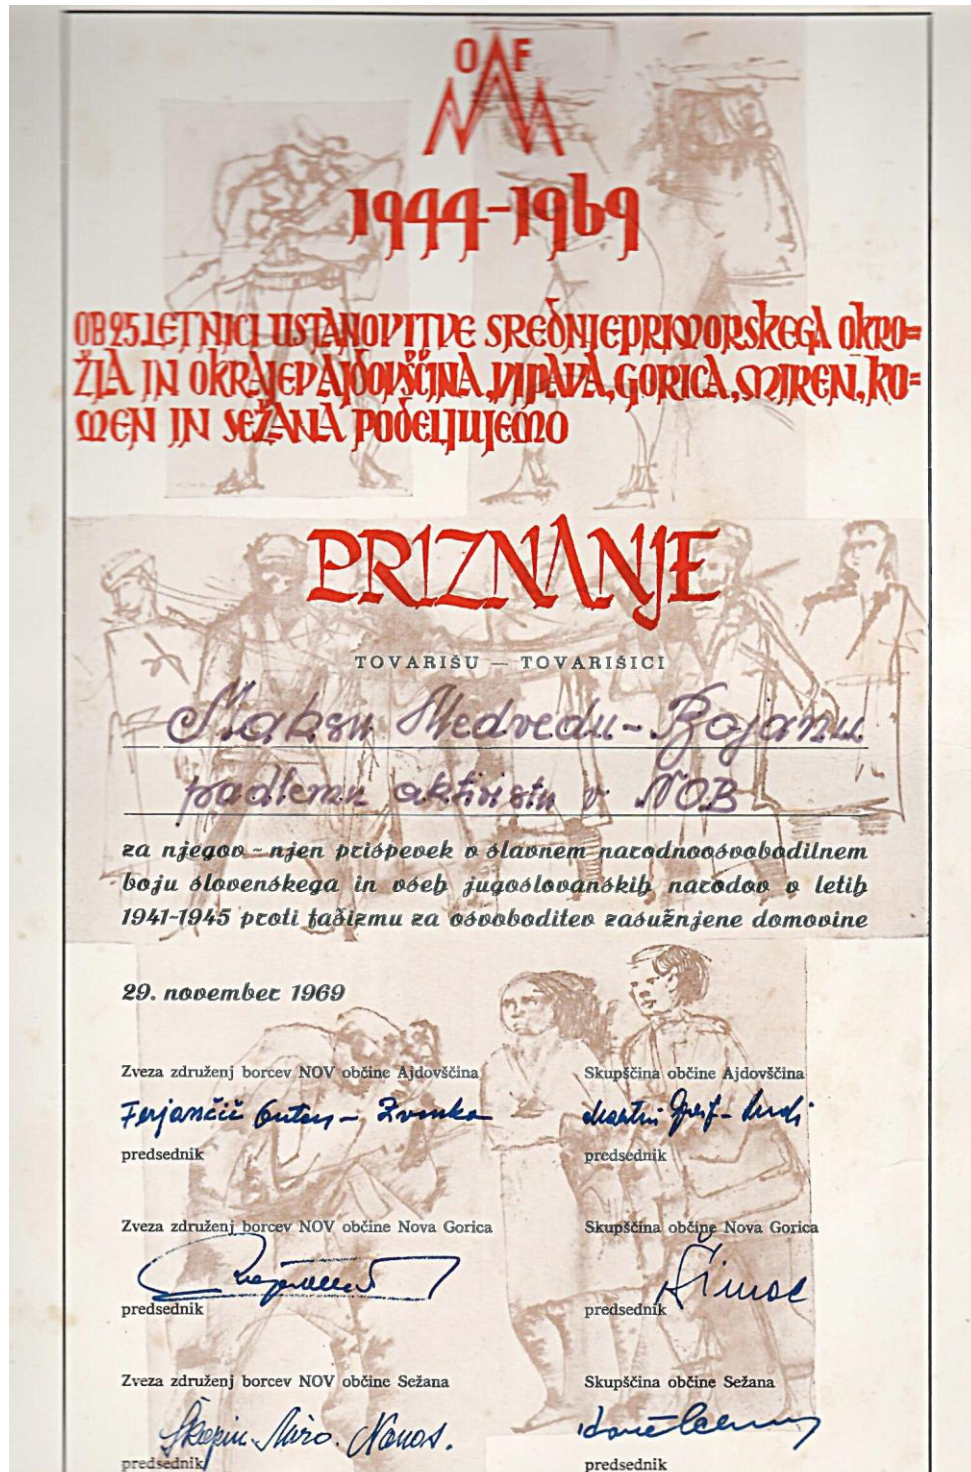 OF
1944-1969
OB 25. LETNICI USTANOVITVE SREDNJEPRIMORSKEGA OKRO=
ŽJA IN OKRAJEV AJDOVŠČINA, VIPAVA, GORICA, MIREN, KO=
MEN IN SEŽANA PODELJUJEMO
PRIZNANJE
TOVARIŠU — TOVARIŠICI
Maksu Medvedu-Bojanu
padlemu aktivistu v NOB
za njegov - njen prispevek v slavnem narodnoosvobodilnem
boju slovenskega in vseh jugoslovanskih narodov v letih
1941-1945 proti fašizmu za osvoboditev zasužnjene domovine
29. november 1969
Zveza združenj borcev NOV občine Ajdovščina
Skupščina občine Ajdovščina
Ferjančič - Zvonko
Martin Greif - Rudi
predsednik
predsednik
Zveza združenj borcev NOV občine Nova Gorica
Skupščina občine Nova Gorica
predsednik
predsednik
Zveza združenj borcev NOV občine Sežana
Skupščina občine Sežana
Škapin Miro. Nanos.
predsednik
predsednik